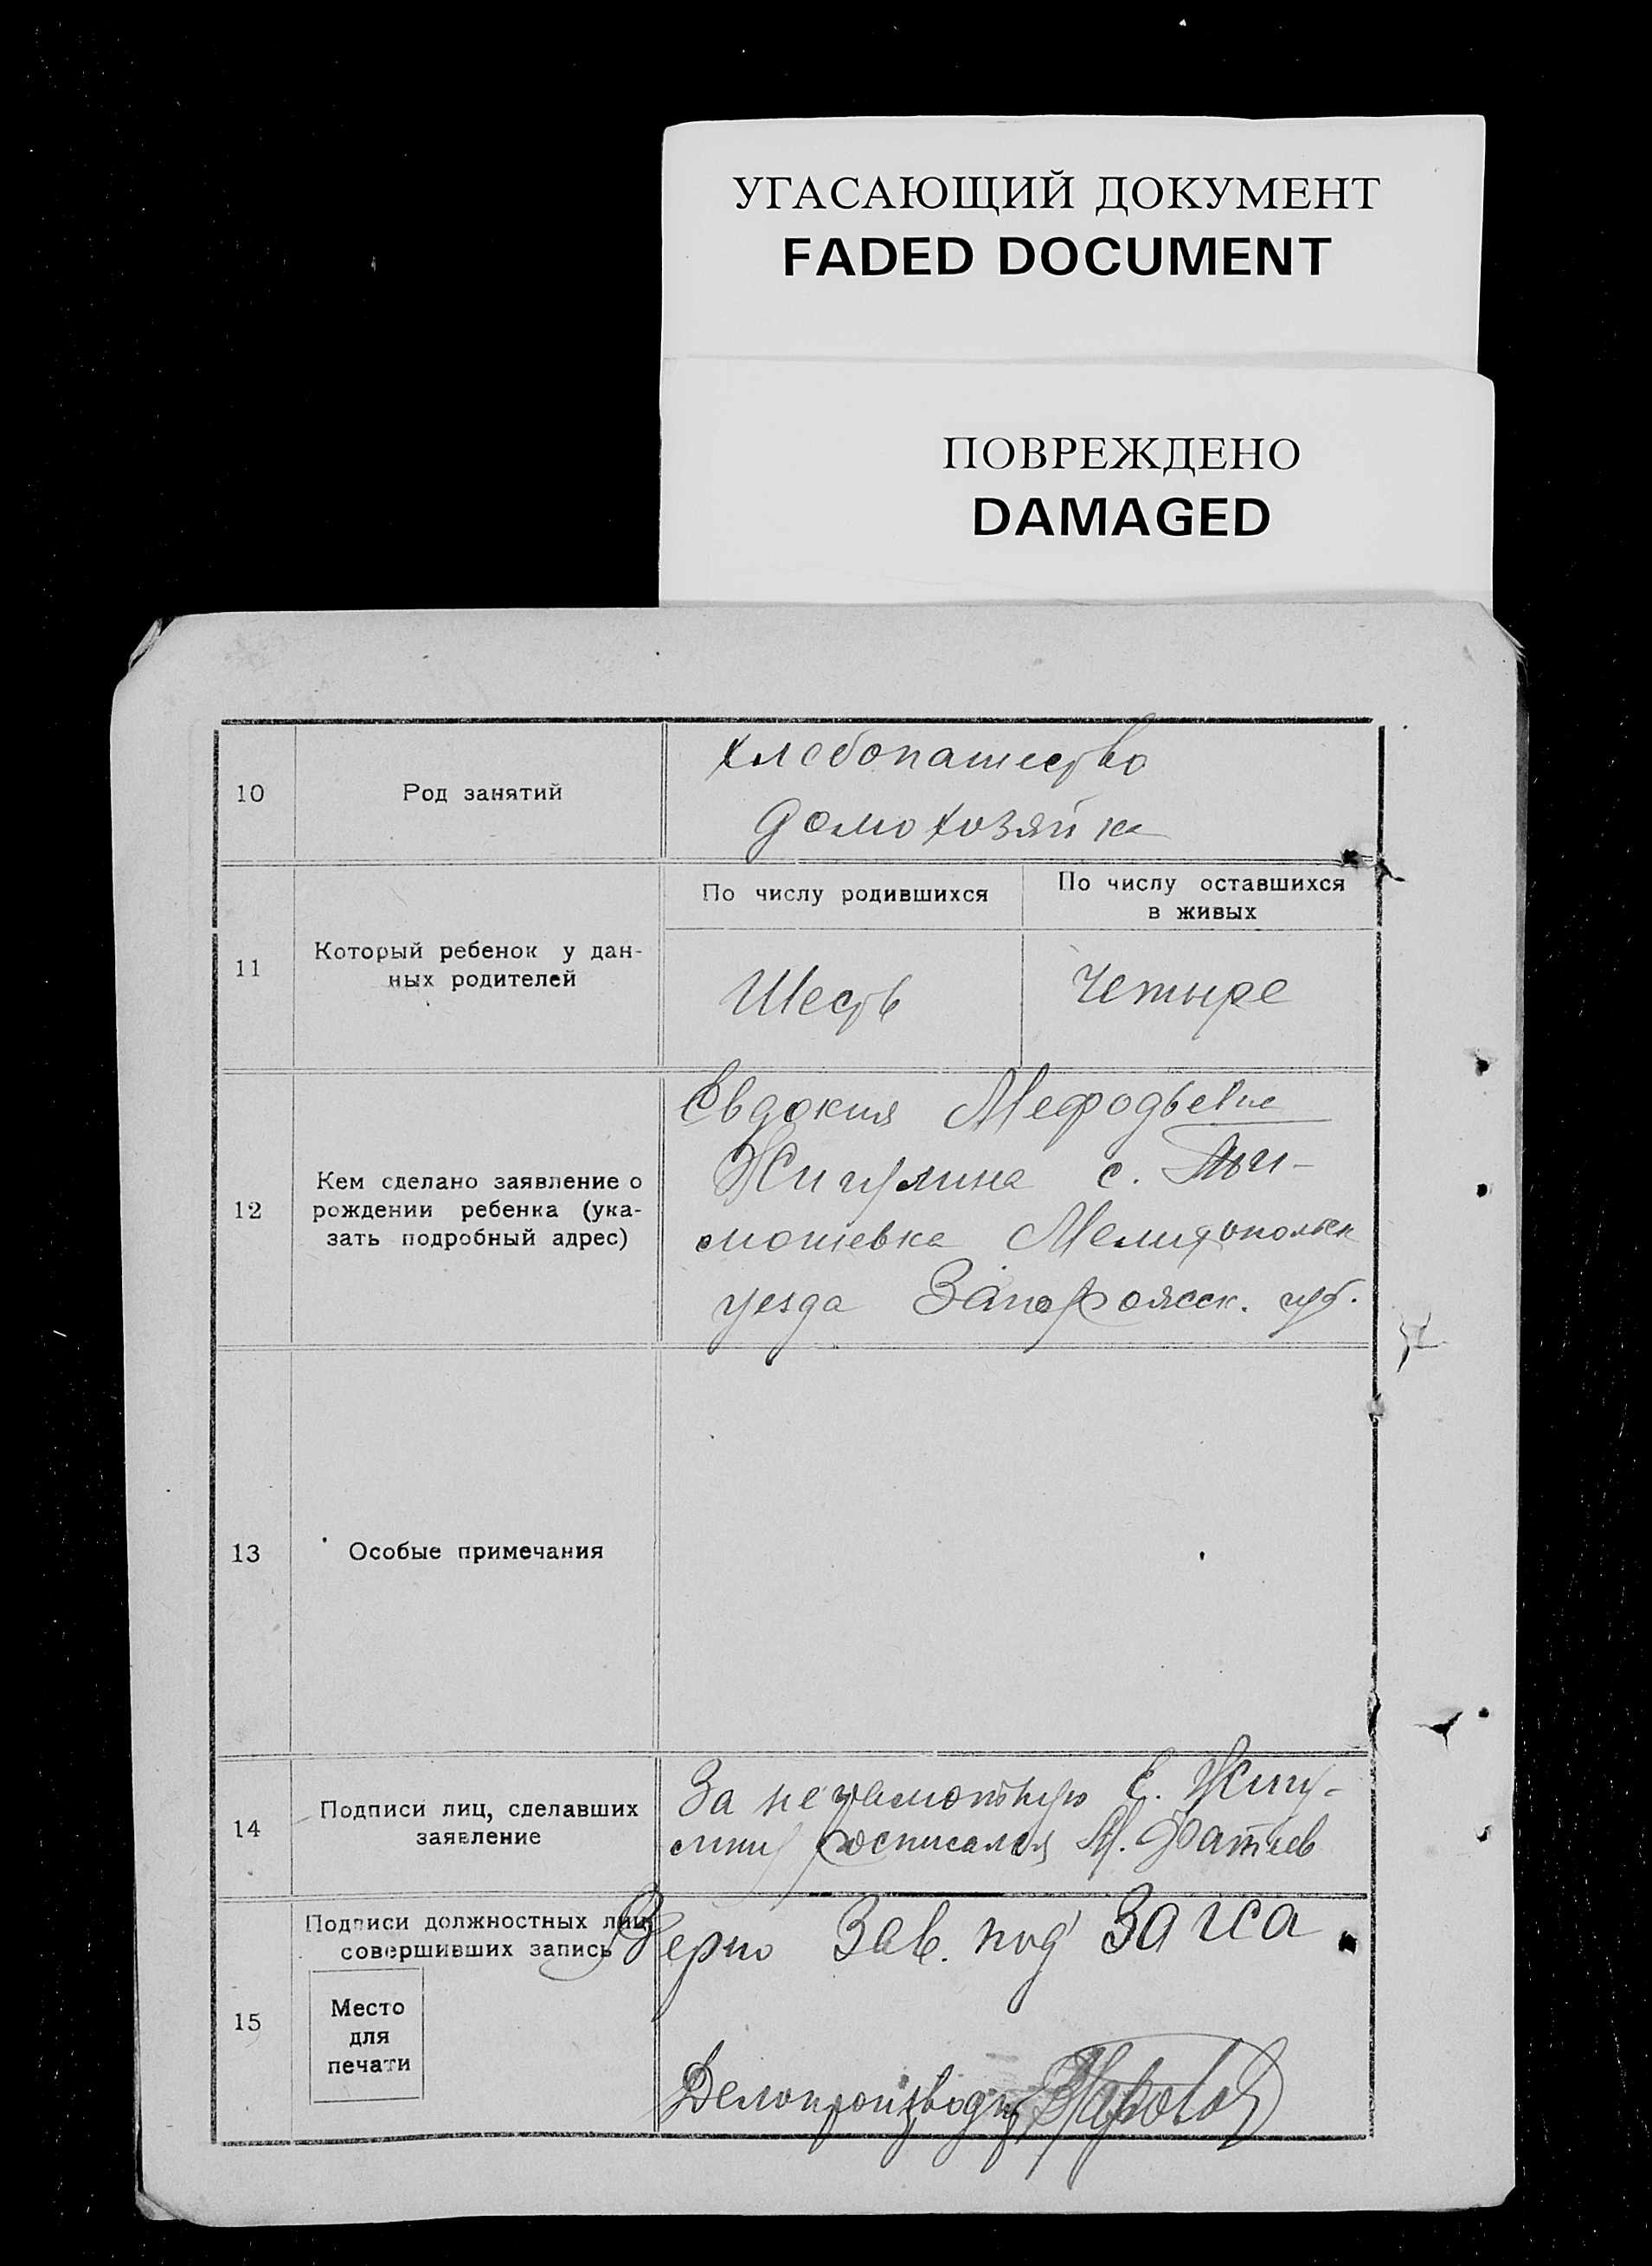 УГАСАЮЩИЙ ДОКУМЕНТ
FADED DOCUMENT
ПОВРЕЖДЕНО
DAMAGED
10
Род занятий
хлебопашество
домохозяйка
11
Который ребенок у дан-
ных родителей
По числу родившихся
По числу оставшихся
в живых
Шесть
Четыре
12
Кем сделано заявление о
рождении ребенка (ука-
зать подробный адрес)
Евдокия Мефодьевна
Жигулина с. Ти-
мошевка Мелитопольск
уезда Запорожск. губ.
13
Особые примечания
14
Подписи лиц, сделавших
заявление
За неграмотную Е. Жигу-
лину росписался М. Фатеев
15
Подписи должностных лиц,
совершивших запись
Место
для
печати
Верно Зав. под Загса
Делопроизвод